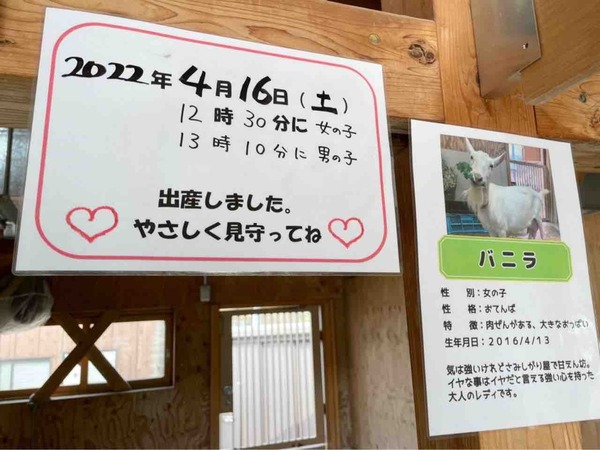 2022年4月16日(土)
12時30分に 女の子
13時10分に 男の子
出産しました。
やさしく見守ってね
バニラ
性　別：女の子
性　格：おてんば
特　徴：肉ぜんがある、大きなおっぱい
生年月日：2016/4/13
気は強いけれどさみしがり屋で甘えん坊。
イヤな事はイヤだと言える強い心を持った
大人のレディです。